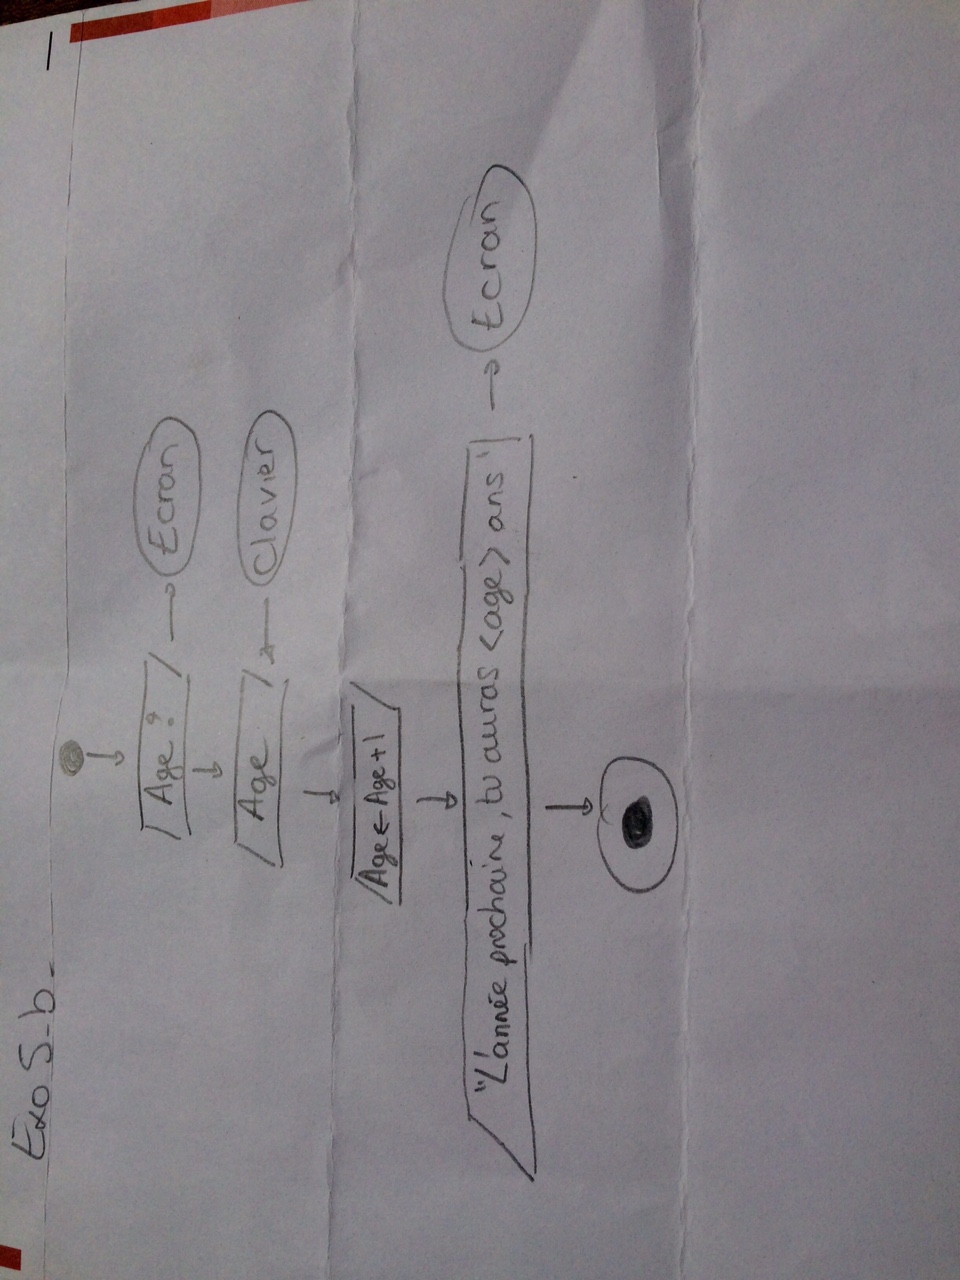 Exo 5-b_
Age ? → Ecran
Age ← Clavier
Age ← Age + 1
"L'année prochaine, tu auras <age> ans" → Ecran